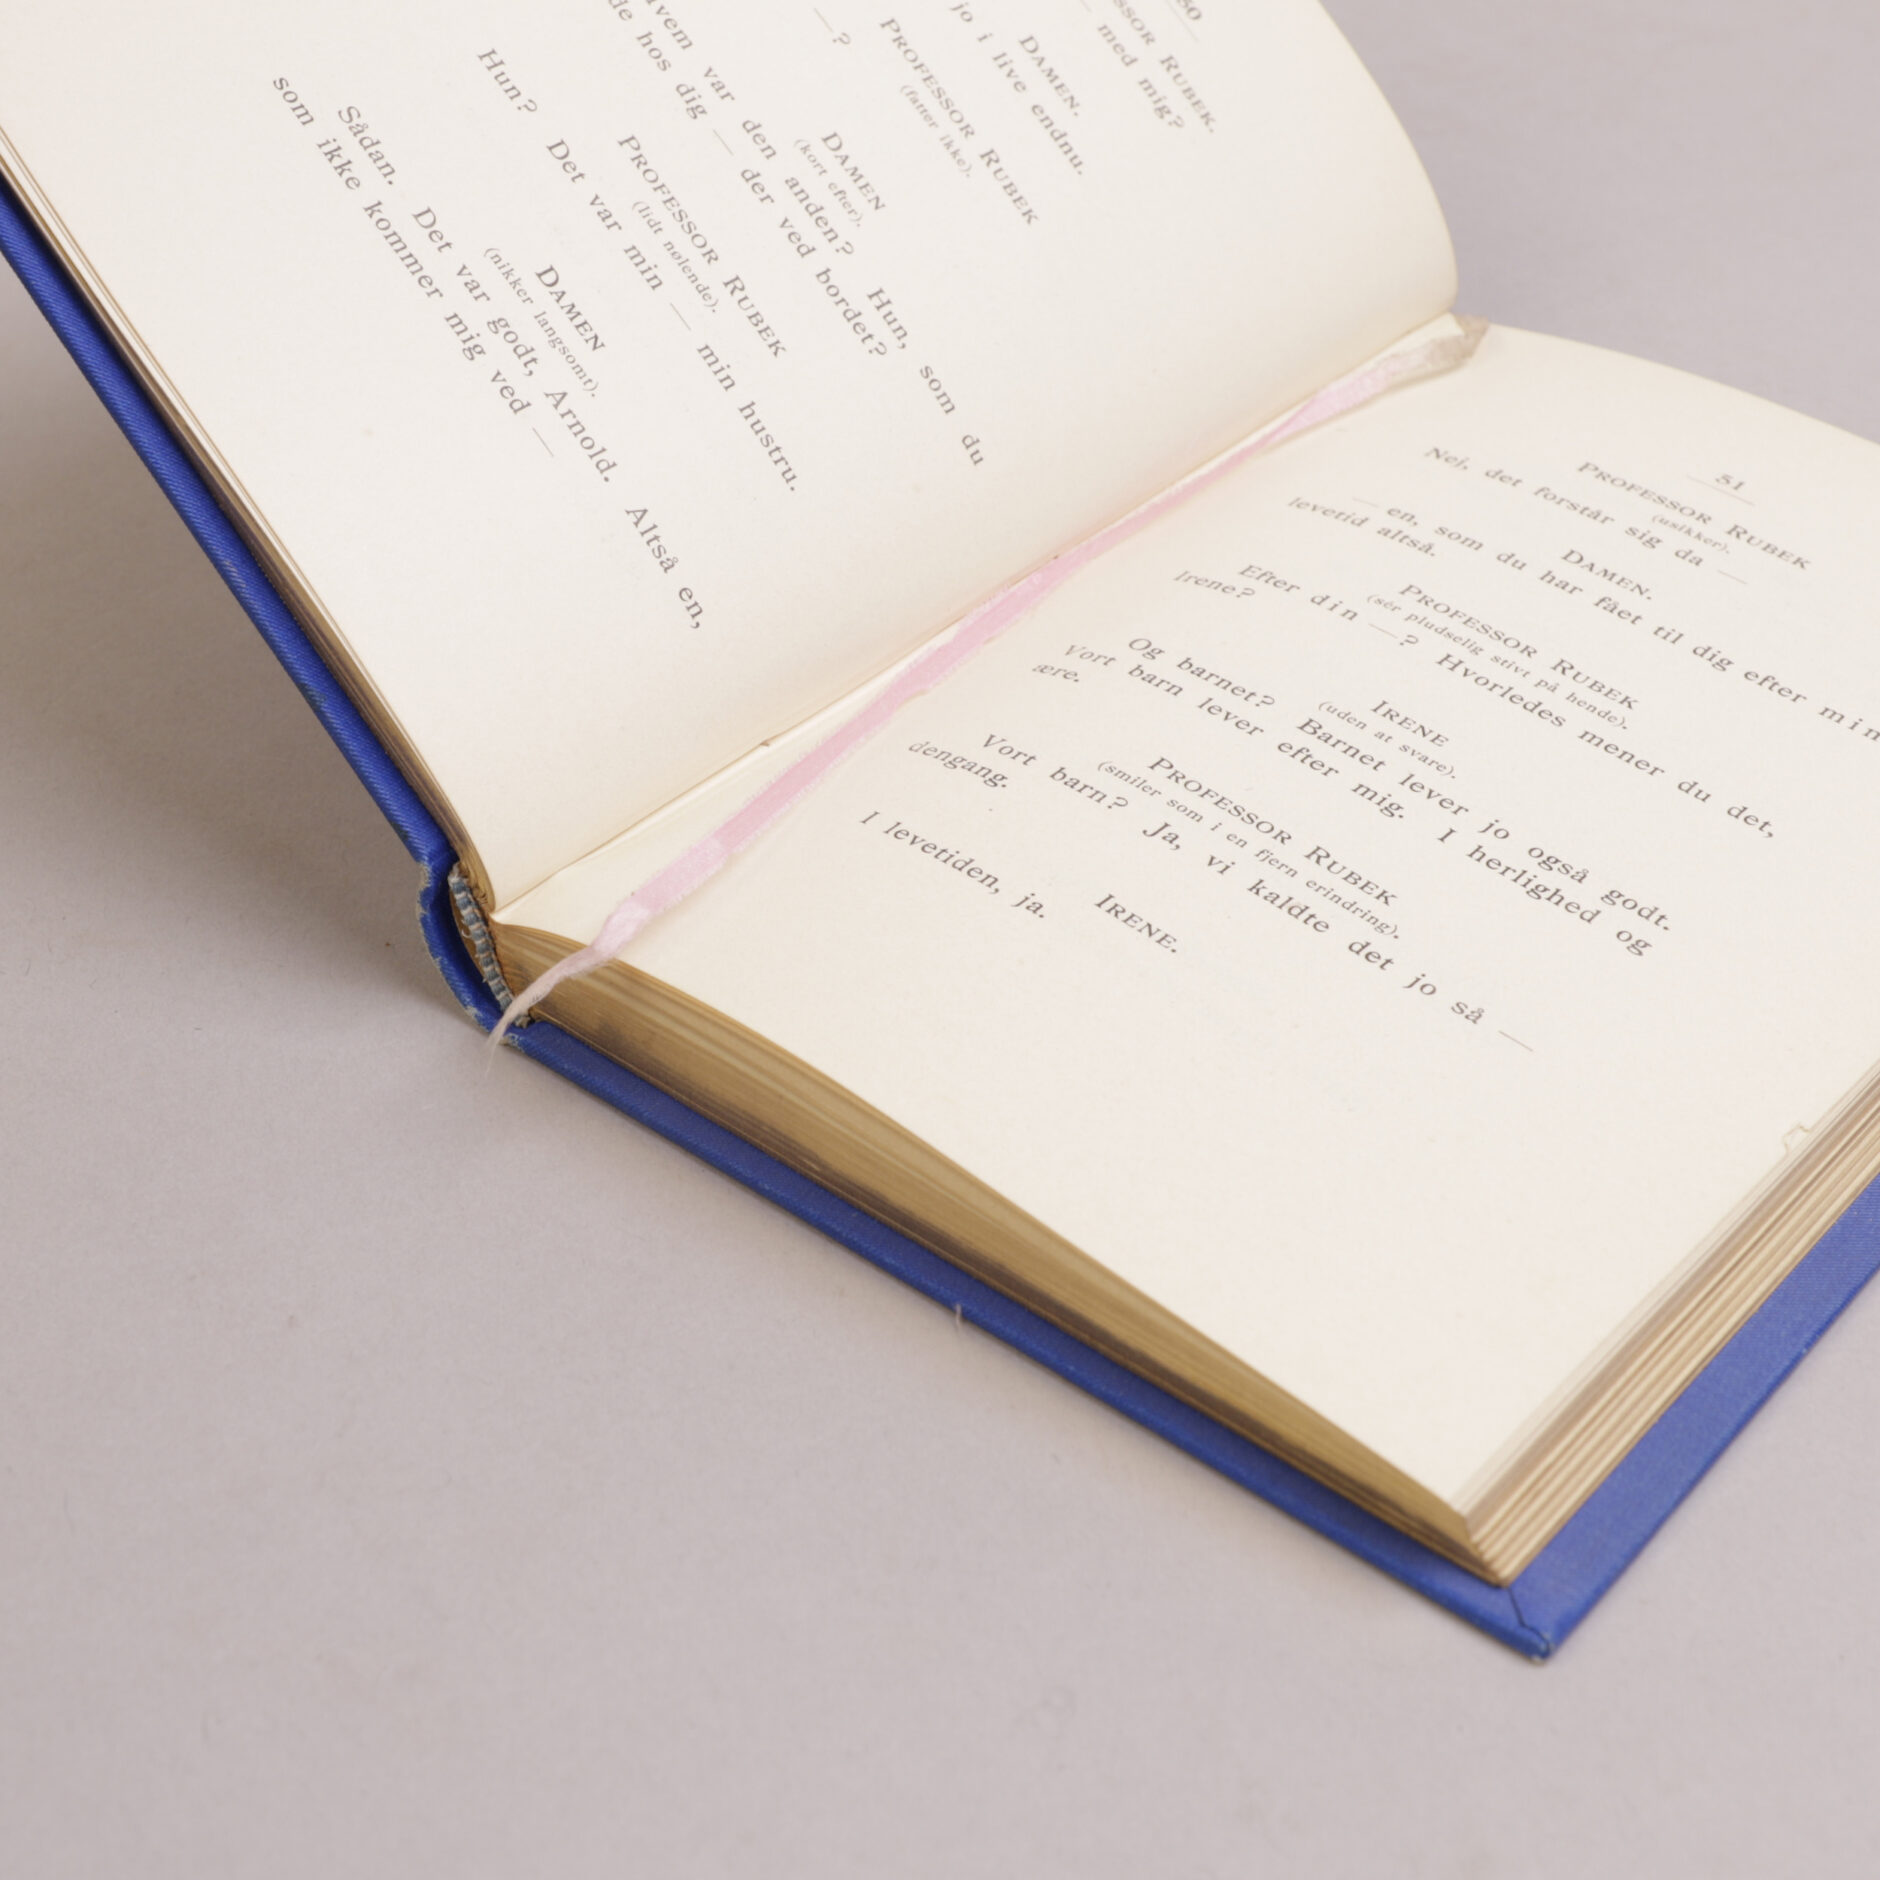 50
PROFESSOR RUBEK.
— med mig?
DAMEN.
jo i live endnu.
PROFESSOR RUBEK
(fatter ikke).
—?
DAMEN
(kort efter).
var den anden? Hun, som du
hos dig — der ved bordet?
PROFESSOR RUBEK
(lidt nølende).
Hun? Det var min — min hustru.
DAMEN
(nikker langsomt).
Sådan. Det var godt, Arnold. Altså en,
som ikke kommer mig ved —
51
PROFESSOR RUBEK
(usikker).
Nej, det forstår sig da —
DAMEN.
— en, som du har fået til dig efter min
levetid altså.
PROFESSOR RUBEK
(sér pludselig stivt på hende).
Efter din —? Hvorledes mener du det,
Irene?
IRENE
(uden at svare).
Og barnet? Barnet lever jo også godt.
Vort barn lever efter mig. I herlighed og
ære.
PROFESSOR RUBEK
(smiler som i en fjern erindring).
Vort barn? Ja, vi kaldte det jo så —
dengang.
IRENE.
I levetiden, ja.